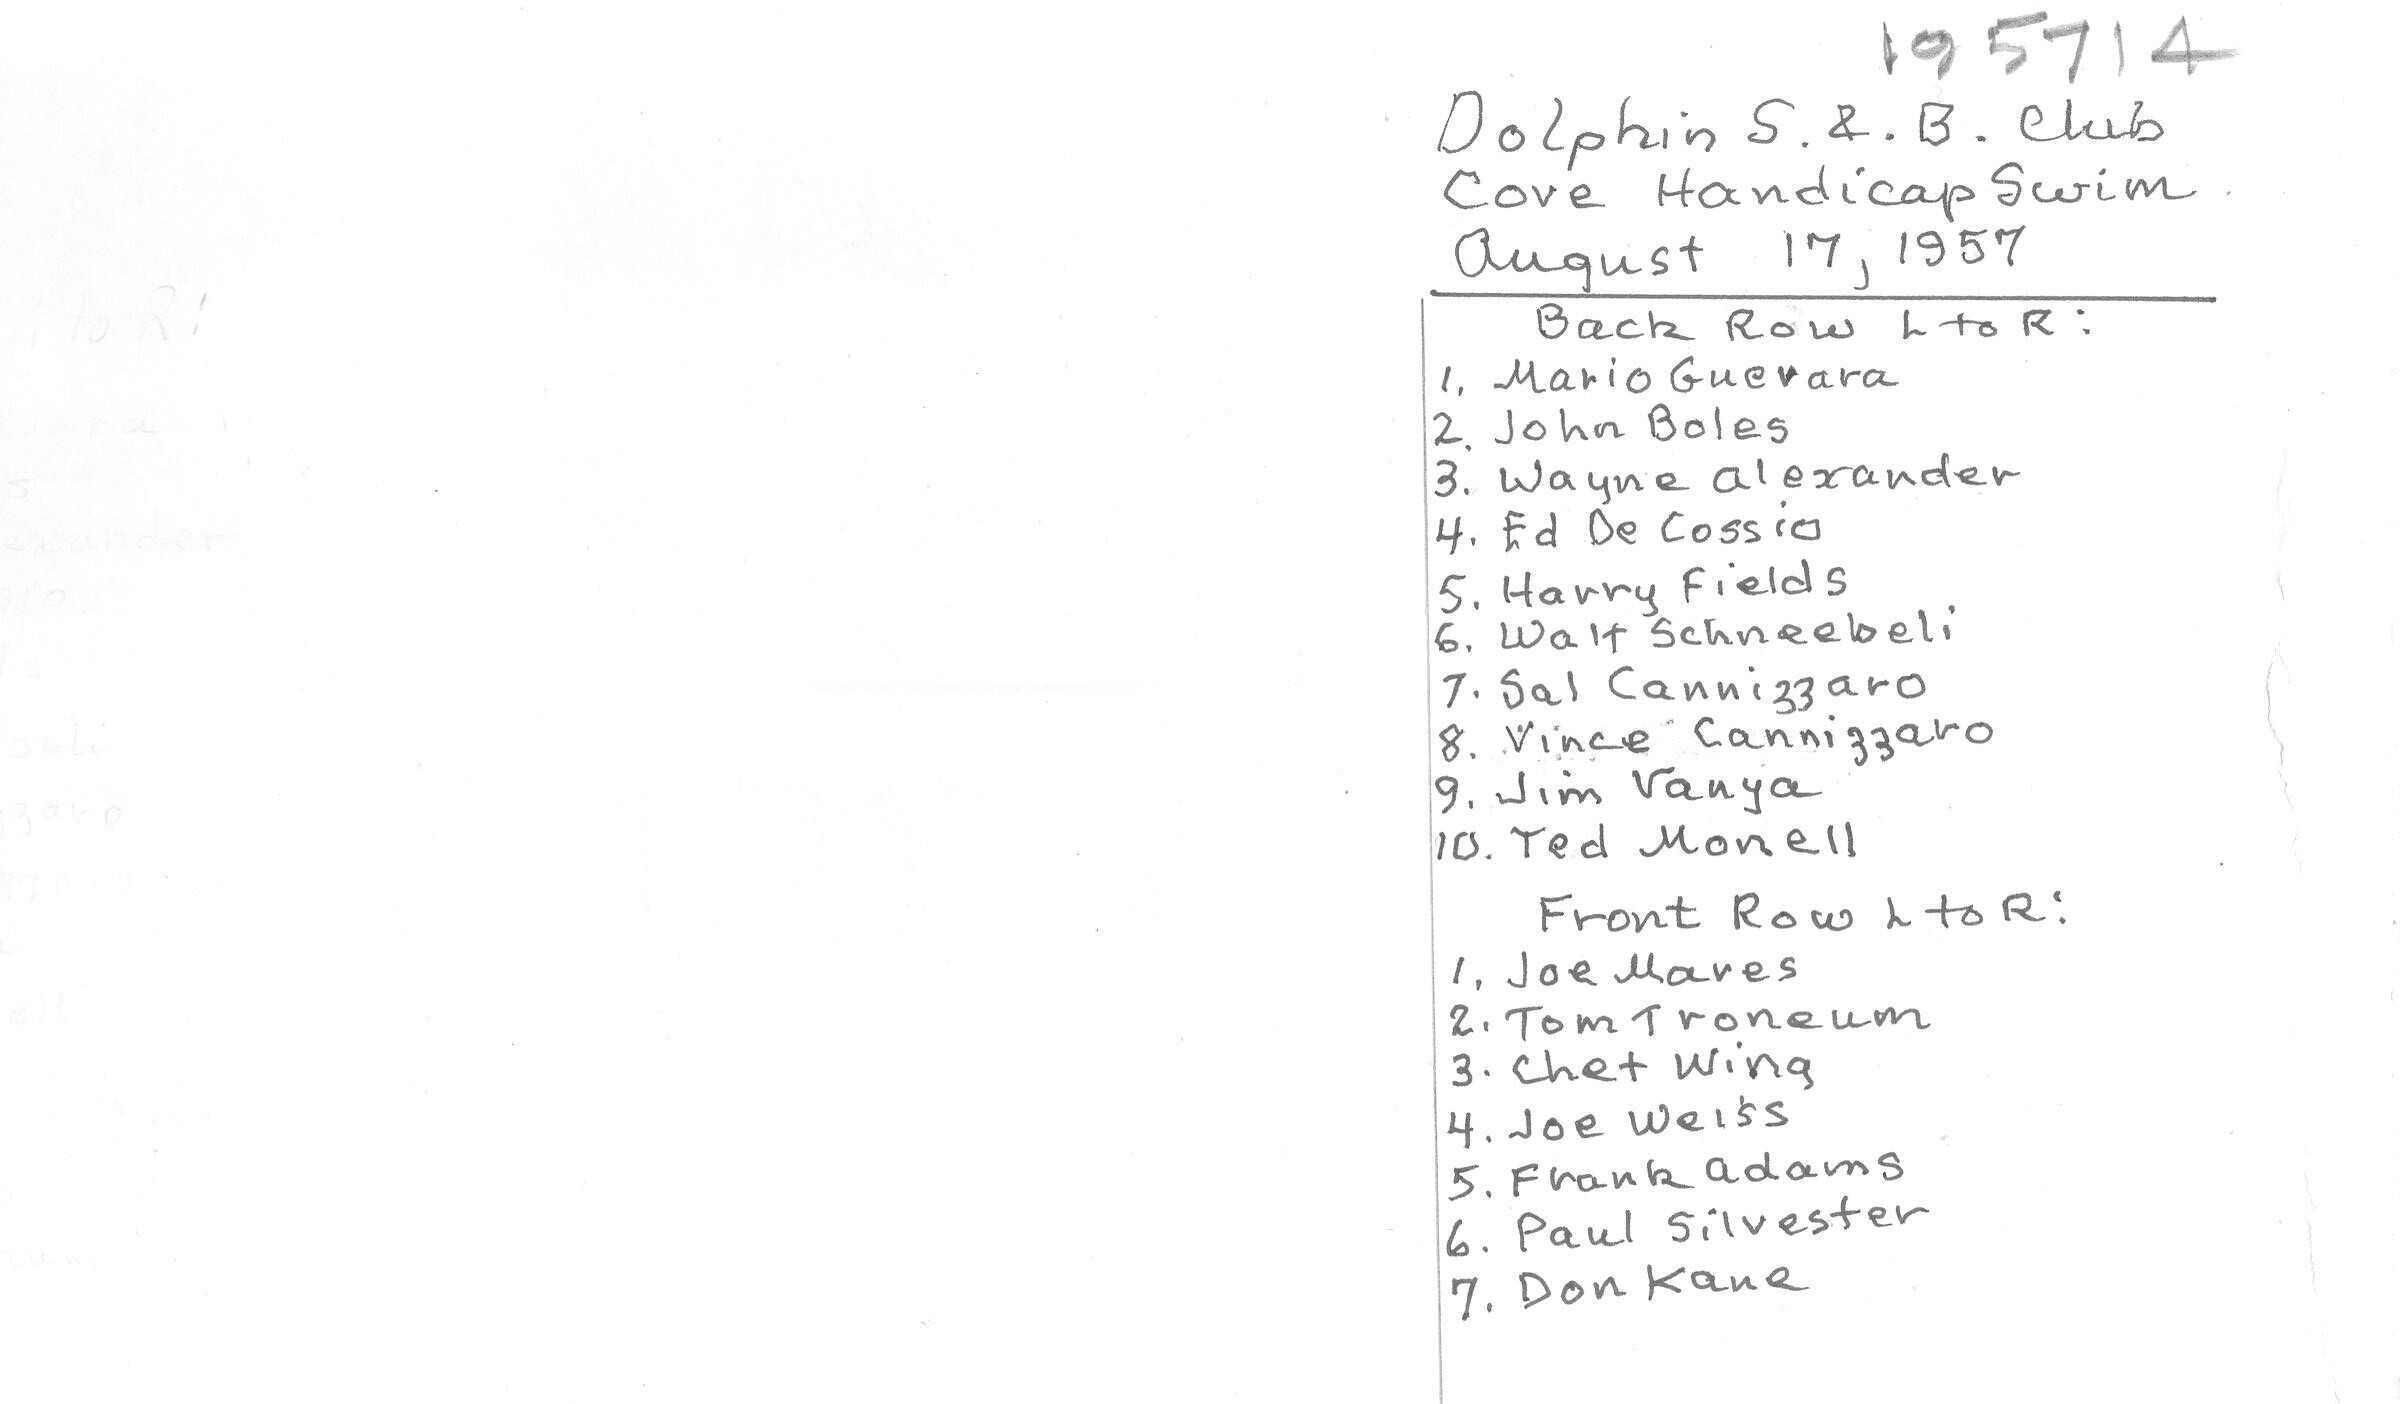 195714
Dolphin S. & B. Club
Cove Handicap Swim
August 17, 1957
Back Row L to R:
1. Mario Guevara
2. John Boles
3. Wayne Alexander
4. Ed De Cossio
5. Harry Fields
6. Walt Schneebeli
7. Sal Cannizzaro
8. Vince Cannizzaro
9. Jim Vanya
10. Ted Monell
Front Row L to R:
1. Joe Mares
2. Tom Troneum
3. Chet Wing
4. Joe Weiss
5. Frank Adams
6. Paul Silvester
7. Don Kane